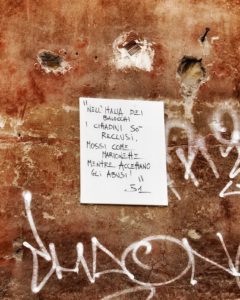 "NELL'ITALIA DEI
BALOCCHI
I CITTADINI SO'
RECLUSI,
MOSSI COME
MARIONETTE
MENTRE ACCETTANO
GLI ABUSI!"